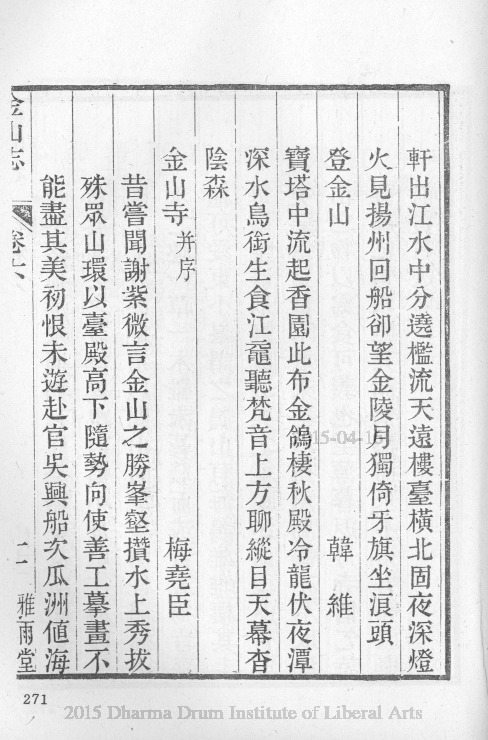 軒出江水中分遶檻流天遠樓臺橫北固夜深燈
火見揚州回船卻望金陵月獨倚牙旗坐浪頭
登金山 韓維
寶塔中流起香園此布金鴿棲秋殿冷龍伏夜潭
深水鳥銜生食江黿聽梵音上方聊縱目天幕杳
陰森
金山寺并序 梅堯臣
昔嘗聞謝紫微言金山之勝峯壑攢水上秀拔
殊眾山環以臺殿高下隨勢向使善工摹畫不
能盡其美初恨未遊赴官吳興船次瓜洲値海
金山志 卷六 二 雅雨堂
271
2015 Dharma Drum Institute of Liberal Arts